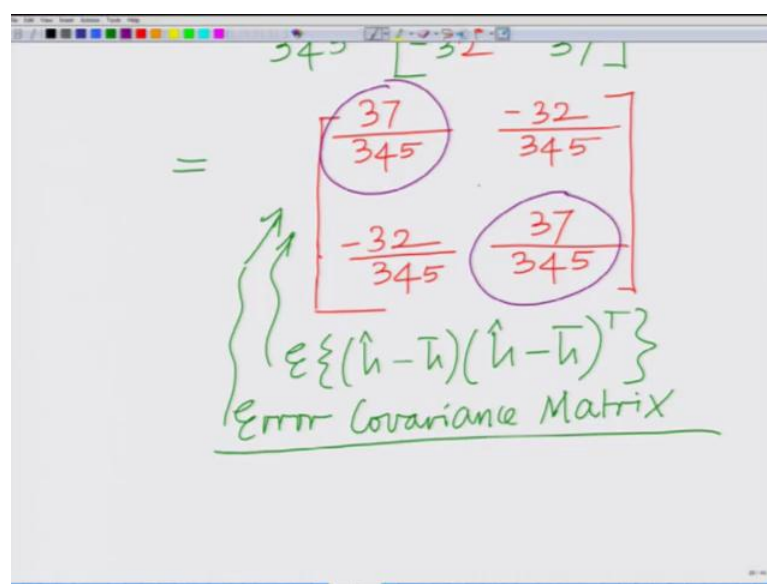 345 [-32 37]
= [37/345 -32/345
-32/345 37/345]
ε{(ĥ-h̄)(ĥ-h̄)ᵀ}
Error Covariance Matrix